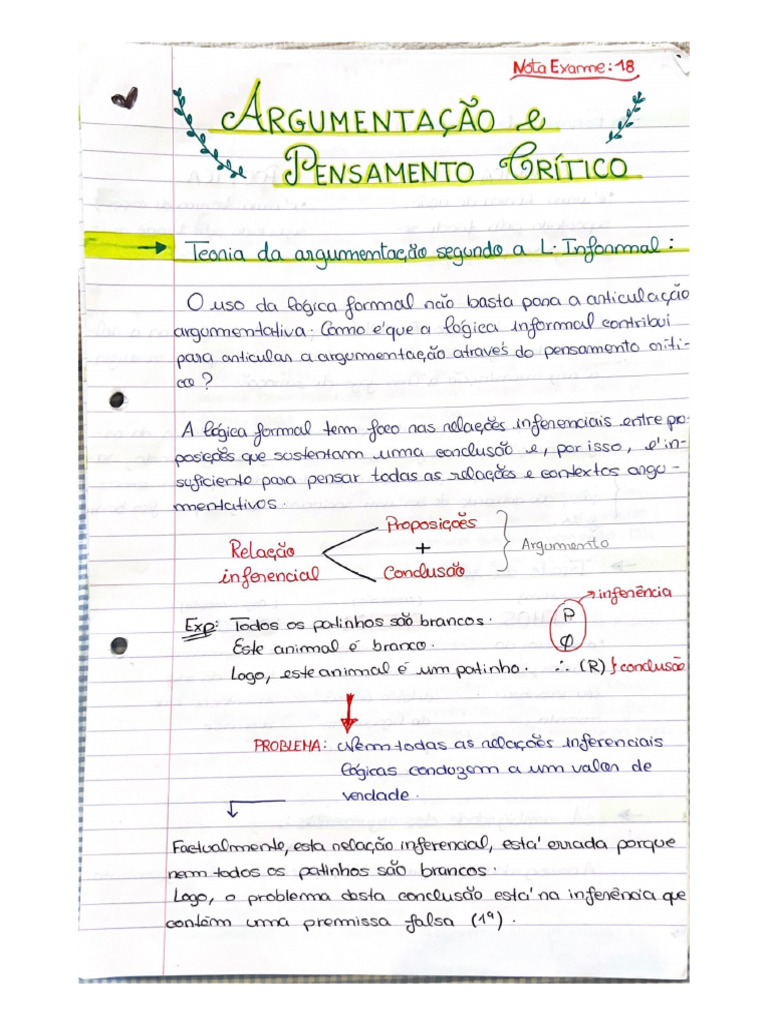 Nota Exame: 18
ARGUMENTAÇÃO e
PENSAMENTO CRÍTICO
→ Teoria da argumentação segundo a L. Informal:
O uso da lógica formal não basta para a articulação
argumentativa. Como é que a lógica informal contribui
para articular a argumentação através do pensamento críti-
co?
A lógica formal tem foco nas relações inferenciais entre pro-
posições que sustentam uma conclusão e, por isso, é in-
suficiente para pensar todas as relações e contextos argu-
mentativos.
Relação inferencial
Proposições
+
Conclusão
Argumento
Exp: Todos os patinhos são brancos.
Este animal é branco.
Logo, este animal é um patinho.
P
Q
→ inferência
∴ (R) } conclusão
PROBLEMA: Nem todas as relações inferenciais
lógicas conduzem a um valor de
verdade.
Factualmente, esta relação inferencial, está errada porque
nem todos os patinhos são brancos.
Logo, o problema desta conclusão está na inferência que
contém uma premissa falsa (1ª).